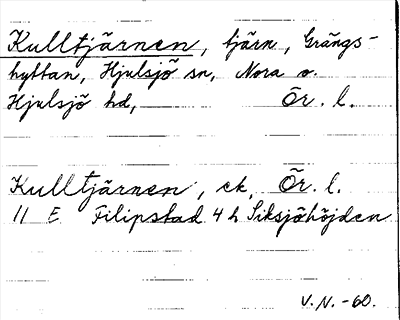 Kulltjärnen, tjärn, Grängs-
hyttan, Hjulsjö sn, Nora o.
Hjulsjö hd, Ör. l.
Kulltjärnen, ek. Ör. l.
11 E Filipstad 4 h Siksjöhöjden
V.N.-60.